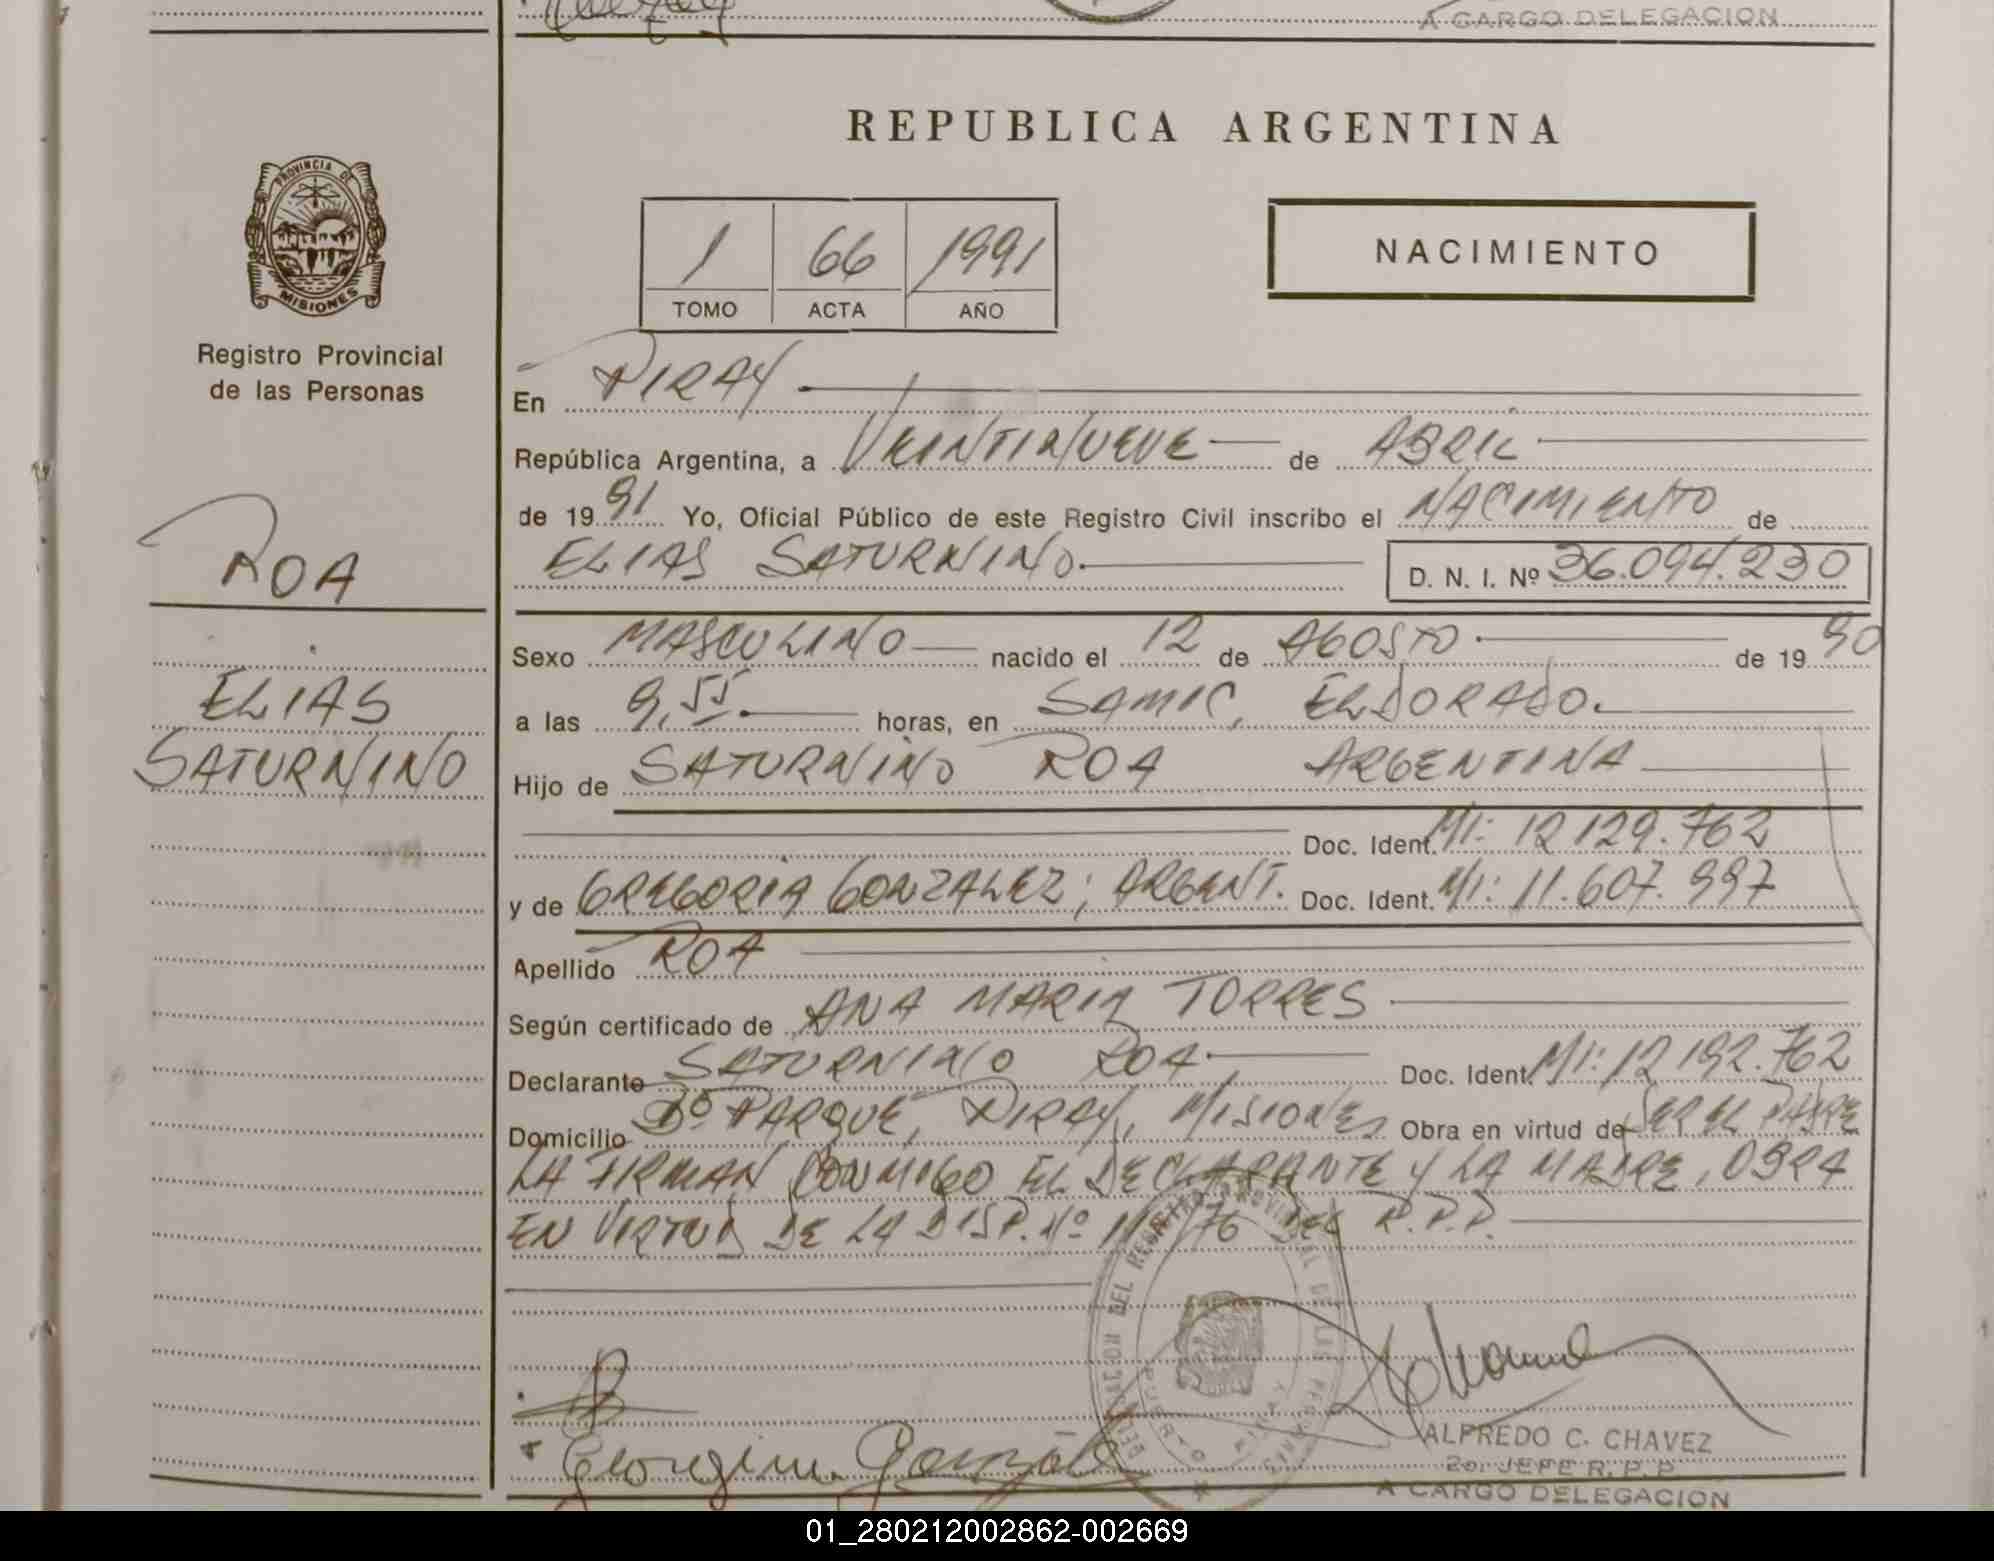 A CARGO DELEGACION
REPUBLICA ARGENTINA
PROVINCIA DE
MISIONES
Registro Provincial
de las Personas
1 66 1991
TOMO ACTA AÑO
NACIMIENTO
En PIRAY
República Argentina, a VEINTINUEVE de ABRIL
de 1991 Yo, Oficial Público de este Registro Civil inscribo el NACIMIENTO de
ELIAS SATURNINO. D. N. I. Nº 36.094.230
ROA
ELIAS
SATURNINO
Sexo MASCULINO nacido el 12 de AGOSTO de 1990
a las 9,55 horas, en SAMIC, ELDORADO.
Hijo de SATURNINO ROA ARGENTINA
Doc. Ident. MI: 12 129.762
y de GREGORIA GONZALEZ; ARGENT. Doc. Ident. MI: 11.607.997
Apellido ROA
Según certificado de ANA MARIA TORRES
Declarante SATURNINO ROA Doc. Ident. MI: 12 192.762
Domicilio Bº PARQUE, PIRAY, MISIONES Obra en virtud de SER EL PADRE
LA FIRMAN CONMIGO EL DECLARANTE Y LA MADRE, OBRA
EN VIRTUD DE LA DISP. Nº /76 DEL R.P.P.
DELEGACION DEL REGISTRO PROVINCIAL DE LAS PERSONAS
PUERTO PIRAY
ALFREDO C. CHAVEZ
2o. JEFE R. P. P.
A CARGO DELEGACION
01_280212002862-002669